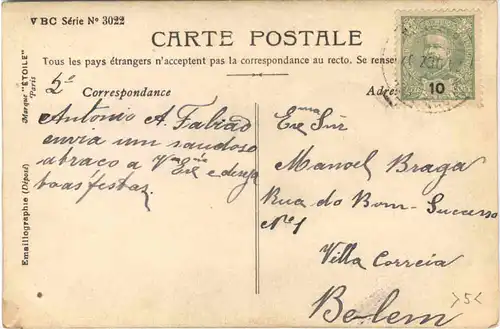 VBC Série Nº 3022
CARTE POSTALE
Tous les pays étrangers n'acceptent pas la correspondance au recto. Se rensei
Correspondance
Adres
Marque "ÉTOILE" Paris
Emaillographie (Déposé)
2ª
Antonio A. Falcão
envia um saudoso
abraço a Vª Exª e deseja
boas festas
Exma Snr
Manoel Braga
Rua do Bom-Successo
Nº 1
Villa Correia
Belem
10
>5<